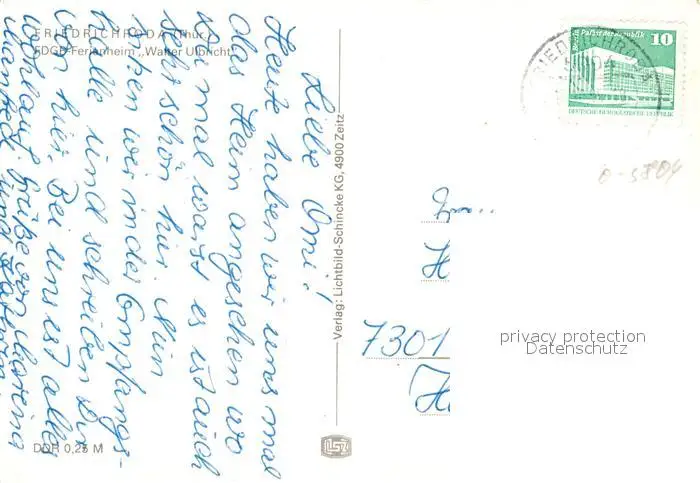 FRIEDRICHRODA (Thür.)
FDGB-Ferienheim „Walter Ulbricht"
Liebe Omi!
Heute haben wir uns mal
das Heim angesehen wo
Du mal warst es ist auch
sehr schön hier. Nun
sitzen wir in der Empfangs-
halle und schreiben Dir
von hier. Bei uns ist alles
wohlauf. Grüße von
Manfred und
DDR 0,25 M
Verlag: Lichtbild-Schincke KG, 4900 Zeitz
LSZ
Palast der Republik
10
DEUTSCHE DEMOKRATISCHE REPUBLIK
FRIEDRICHRODA
5804
0-5804
7301
privacy protection
Datenschutz